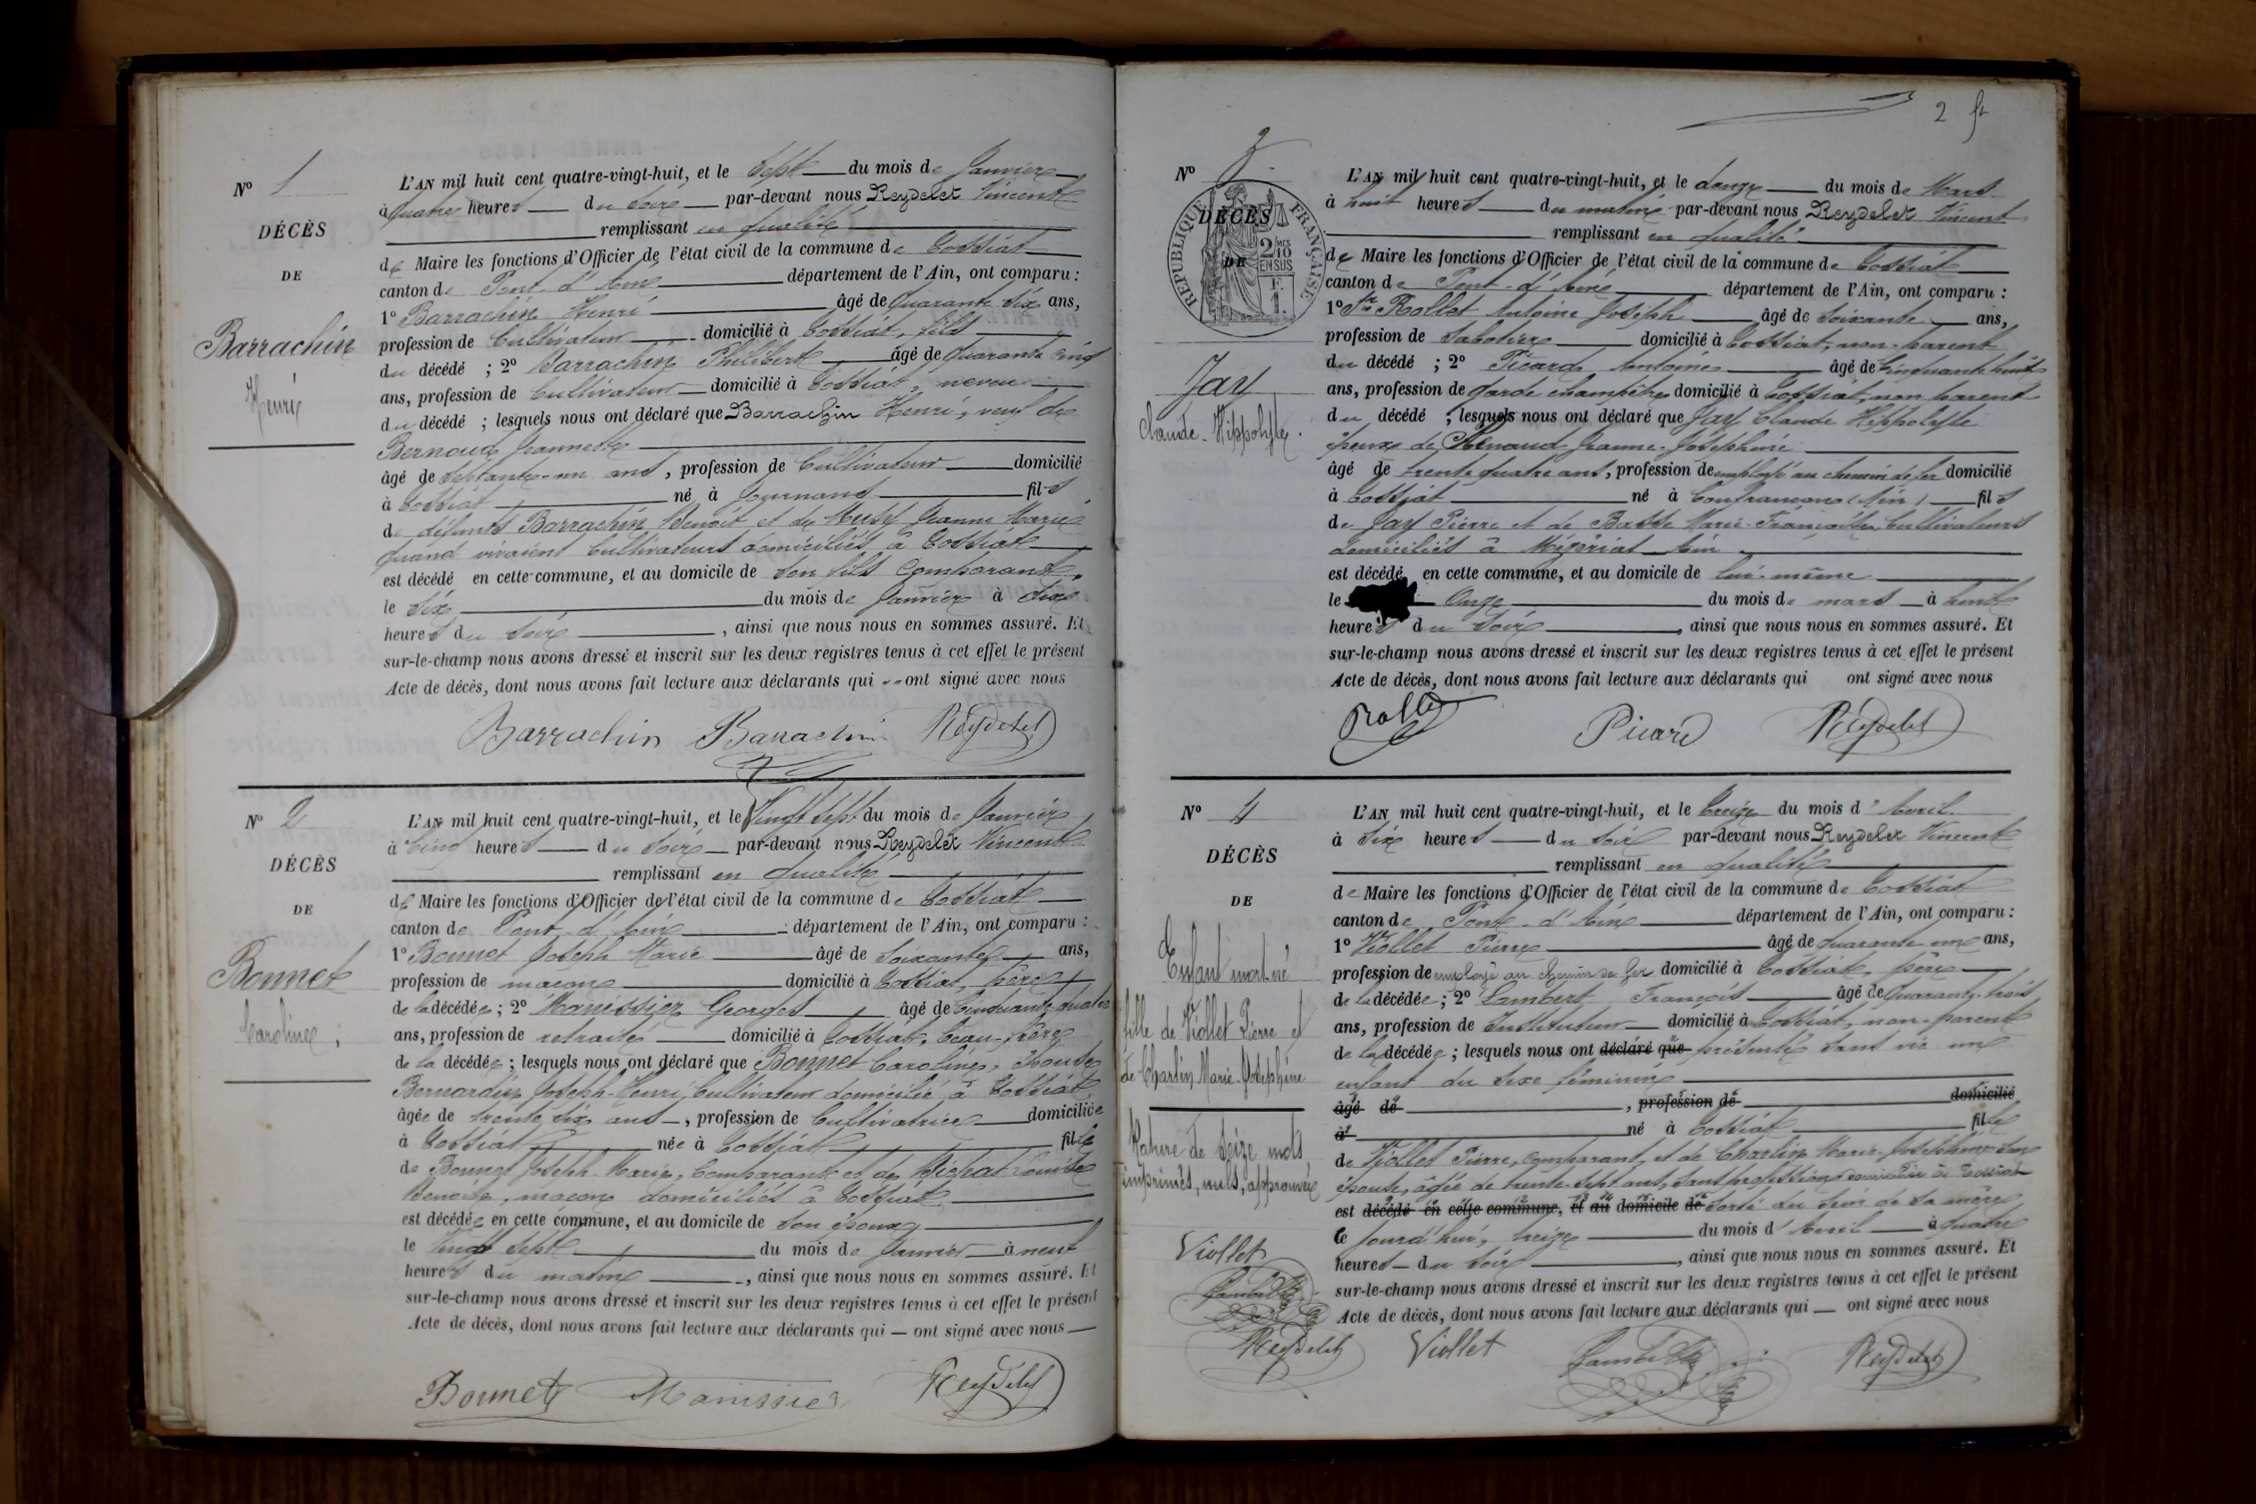 N° 1
DÉCÈS
DE
Barrachin
Henri
L'AN mil huit cent quatre-vingt-huit, et le Sept du mois de Janvier
à quatre heures du soir par-devant nous Reydelet Vincent
remplissant en qualité
de Maire les fonctions d'Officier de l'état civil de la commune de Cossiat
canton de Pont-d'Ain département de l'Ain, ont comparu :
1° Barrachin Henri âgé de quarante six ans,
profession de Cultivateur domicilié à Cossiat, fils
du décédé ; 2° Barrachin Philibert âgé de quarante cinq
ans, profession de Cultivateur domicilié à Cossiat, neveu
du décédé ; lesquels nous ont déclaré que Barrachin Henri, veuf de
Bernoud Jeannette
âgé de septante-un ans, profession de Cultivateur domicilié
à Cossiat né à Journans fils
de défunts Barrachin Benoît et de Jeanne Marie
quand vivaient Cultivateurs domiciliés à Cossiat
est décédé en cette commune, et au domicile de son fils comparant,
le six du mois de Janvier à six
heures du soir, ainsi que nous nous en sommes assuré. Et
sur-le-champ nous avons dressé et inscrit sur les deux registres tenus à cet effet le présent
Acte de décès, dont nous avons fait lecture aux déclarants qui ont signé avec nous
Barrachin Barrachin Reydelet
N° 2
DÉCÈS
DE
Bonnet
Caroline
L'AN mil huit cent quatre-vingt-huit, et le Vingt Sept du mois de Janvier
à Cinq heures du soir par-devant nous Reydelet Vincent
remplissant en qualité
de Maire les fonctions d'Officier de l'état civil de la commune de Cossiat
canton de Pont-d'Ain département de l'Ain, ont comparu :
1° Bonnet Joseph Marie âgé de soixante ans,
profession de maçon domicilié à Cossiat, père
de la décédée ; 2° Manissier Georges âgé de Cinquante-quatre
ans, profession de retraité domicilié à Cossiat, beau-frère
de la décédée ; lesquels nous ont déclaré que Bonnet Caroline, Epouse
Bernardin Joseph-Henri, Cultivateur domicilié à Cossiat
âgée de trente six ans, profession de Cultivatrice domiciliée
à Cossiat née à Cossiat fille
de Bonnet Joseph-Marie, Comparant et de Louise
maçons domiciliés à Cossiat
est décédée en cette commune, et au domicile de son époux
le Vingt Sept du mois de Janvier à neuf
heures du matin, ainsi que nous nous en sommes assuré. Et
sur-le-champ nous avons dressé et inscrit sur les deux registres tenus à cet effet le présent
Acte de décès, dont nous avons fait lecture aux déclarants qui ont signé avec nous
Bonnet Manissier Reydelet
2 ft
N° 3
RÉPUBLIQUE FRANÇAISE
2/10 MES EN SUS
F. 1
DÉCÈS
DE
Jay
Claude-Hippolyte
L'AN mil huit cent quatre-vingt-huit, et le douze du mois de Mars
à huit heures du matin par-devant nous Reydelet Vincent
remplissant en qualité
de Maire les fonctions d'Officier de l'état civil de la commune de Cossiat
canton de Pont-d'Ain département de l'Ain, ont comparu :
1° Sr Rollet Antoine Joseph âgé de soixante ans,
profession de Sabotier domicilié à Cossiat, non-parent
du décédé ; 2° Picard Antoine âgé de Cinquante huit
ans, profession de garde champêtre domicilié à Cossiat, non parent
du décédé ; lesquels nous ont déclaré que Jay Claude Hippolyte
époux de Renaud Jeanne-Josephine
âgé de trente quatre ans, profession de employé au chemin de fer domicilié
à Cossiat né à Confrançon (Ain) fils
de Jay Pierre et de Basse Marie-Françoise, Cultivateurs
domiciliés à Mézériat Ain
est décédé en cette commune, et au domicile de lui-même
le Onze du mois de mars à huit
heures du soir, ainsi que nous nous en sommes assuré. Et
sur-le-champ nous avons dressé et inscrit sur les deux registres tenus à cet effet le présent
Acte de décès, dont nous avons fait lecture aux déclarants qui ont signé avec nous
Rollet Picard Reydelet
N° 4
DÉCÈS
DE
Enfant mort-né
fille de Viollet Pierre et
de Charlin Marie-Josephine
Rature de seize mots
imprimés, nuls, approuvée
Viollet
Lambert
Reydelet
L'AN mil huit cent quatre-vingt-huit, et le treize du mois d'Avril
à six heures du soir par-devant nous Reydelet Vincent
remplissant en qualité
de Maire les fonctions d'Officier de l'état civil de la commune de Cossiat
canton de Pont-d'Ain département de l'Ain, ont comparu :
1° Viollet Pierre âgé de quarante une ans,
profession de employé au chemin de fer domicilié à Cossiat, père
de la décédée ; 2° Lambert François âgé de quarante-trois
ans, profession de Instituteur domicilié à Cossiat, non-parent
de la décédée ; lesquels nous ont déclaré que présenté sans vie une
enfant du sexe féminin
âgé de , profession de domicilié
à né à Cossiat fille
de Viollet Pierre, comparant, et de Charlin Marie-Josephine son
épouse, âgée de trente-sept ans, sans profession domiciliée à Cossiat
est décédé en cette commune, et au domicile de sorti du sein de sa mère
le jourd'hui, treize du mois d'Avril à quatre
heures du soir, ainsi que nous nous en sommes assuré. Et
sur-le-champ nous avons dressé et inscrit sur les deux registres tenus à cet effet le présent
Acte de décès, dont nous avons fait lecture aux déclarants qui ont signé avec nous
Viollet Lambert Reydelet